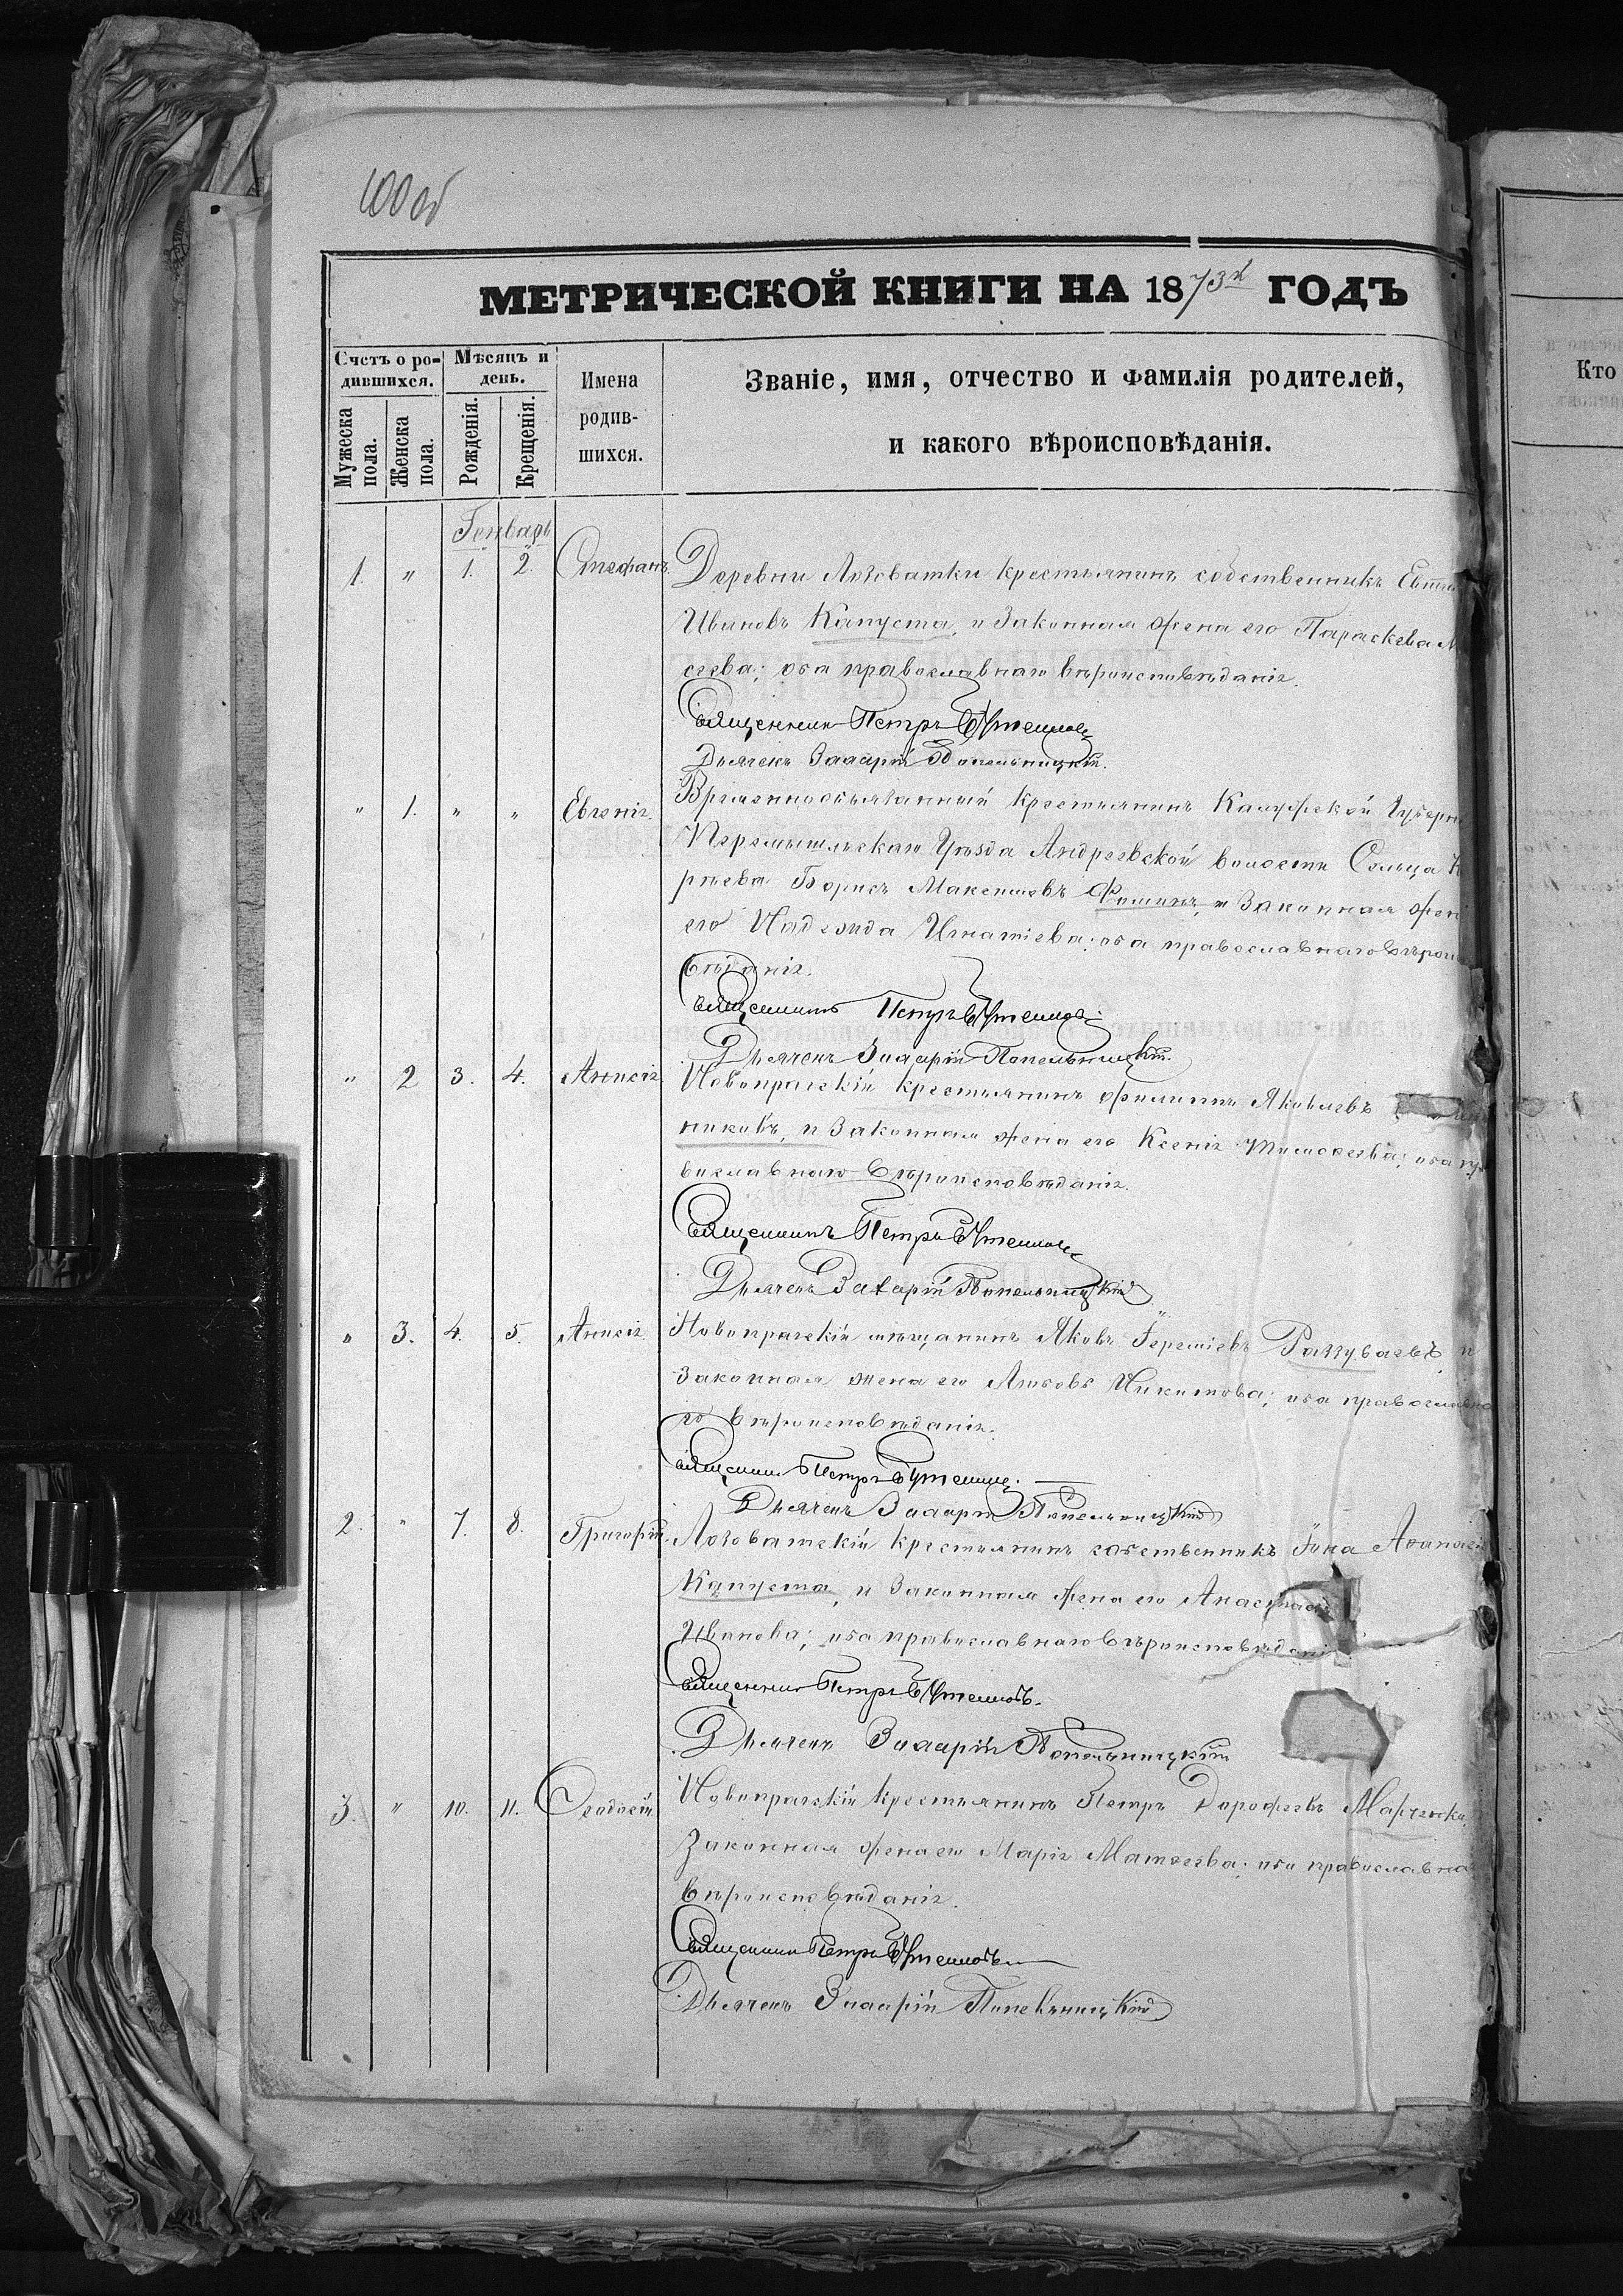 100 об
МЕТРИЧЕСКОЙ КНИГИ НА 1873й ГОДЪ
Счетъ о ро-
дившихся.
Мѣсяцъ и
день.
Имена
родив-
шихся.
Званіе, имя, отчество и фамилія родителей,
и какого вѣроисповѣданія.
Мужеска
пола.
Женска
пола.
Рожденія.
Крещенія.
Кто
Генварь
1. " 1. 2. Стефанъ. Деревни Лозоватки крестьянинъ собственникъ
Ивановъ Капуста, и Законная жена его Параскева
сеева; оба православнаго вѣроисповѣданія.
Священникъ Петръ
Дьячекъ Захарій Попельницкій.
" 1. " " Евгенія. Временнообязанный крестьянинъ Калужской Губерн
Перемышльскаго Уѣзда Андреевской волости Сельца
рѣева Борисъ Максимовъ Фоминъ, и Законная жен
его Надежда Игнатіева; оба православнаго вѣроис
вѣданія.
Священникъ Петръ
Дьячекъ Захарій Попельницкій.
" 2 3. 4. Анисія Новопражскій крестьянинъ Филиппъ Яковлевъ
никовъ, и Законная жена его Ксенія Тимофеева; оба пр
вославнаго вѣроисповѣданія.
Священникъ Петръ
Дьячекъ Захарій Попельницкій
" 3. 4. 5. Анисія. Новопражскій мѣщанинъ Яковъ Іереміевъ Раззуваевъ, и
Законная жена его Любовь Никитова; оба православна
го вѣроисповѣданія.
Священникъ Петръ
Дьячекъ Захарій Попельницкій
2. " 7. 8. Григорій. Лозоватскій крестьянинъ собственникъ Іона Аѳанасі
Капуста, и Законная жена его Анастасія
Иванова; оба православнаго вѣроисповѣдані
Священникъ Петръ
Дьячекъ Захарій Попельницкій
3. " 10. 11. Ѳеодосій Новопражскій крестьянинъ Петръ Дорофеевъ Марченко,
Законная жена его Марія Матѳеева; оба православна
вѣроисповѣданія.
Священникъ Петръ
Дьячекъ Захарій Попельницкій